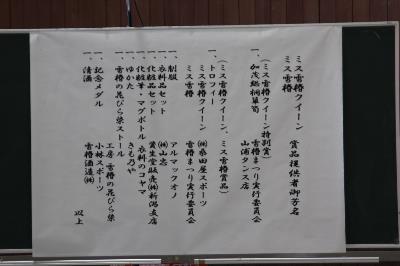 ミス雪椿クイーン
ミス雪椿　賞品提供者御芳名
（ミス雪椿クイーン特別賞）
一、加茂総桐箪笥　雪椿まつり実行委員会
山浦タンス店
（ミス雪椿クイーン、ミス雪椿賞品）
一、トロフィー
ミス雪椿クイーン　㈱桑田屋スポーツ
ミス雪椿　雪椿まつり実行委員会
一、制服　アルマックオノ
一、衣料品セット　㈱山忠
一、化粧品セット　資生堂販売㈱新潟支店
一、化粧筆・マグボトル　衣料のコヤマ
一、ゆかた　きもの乃や
一、雪椿の花びら染ストール
工房・雪椿の花びら染
一、記念メダル　小林スポーツ
一、清酒　雪椿酒造㈱
以上